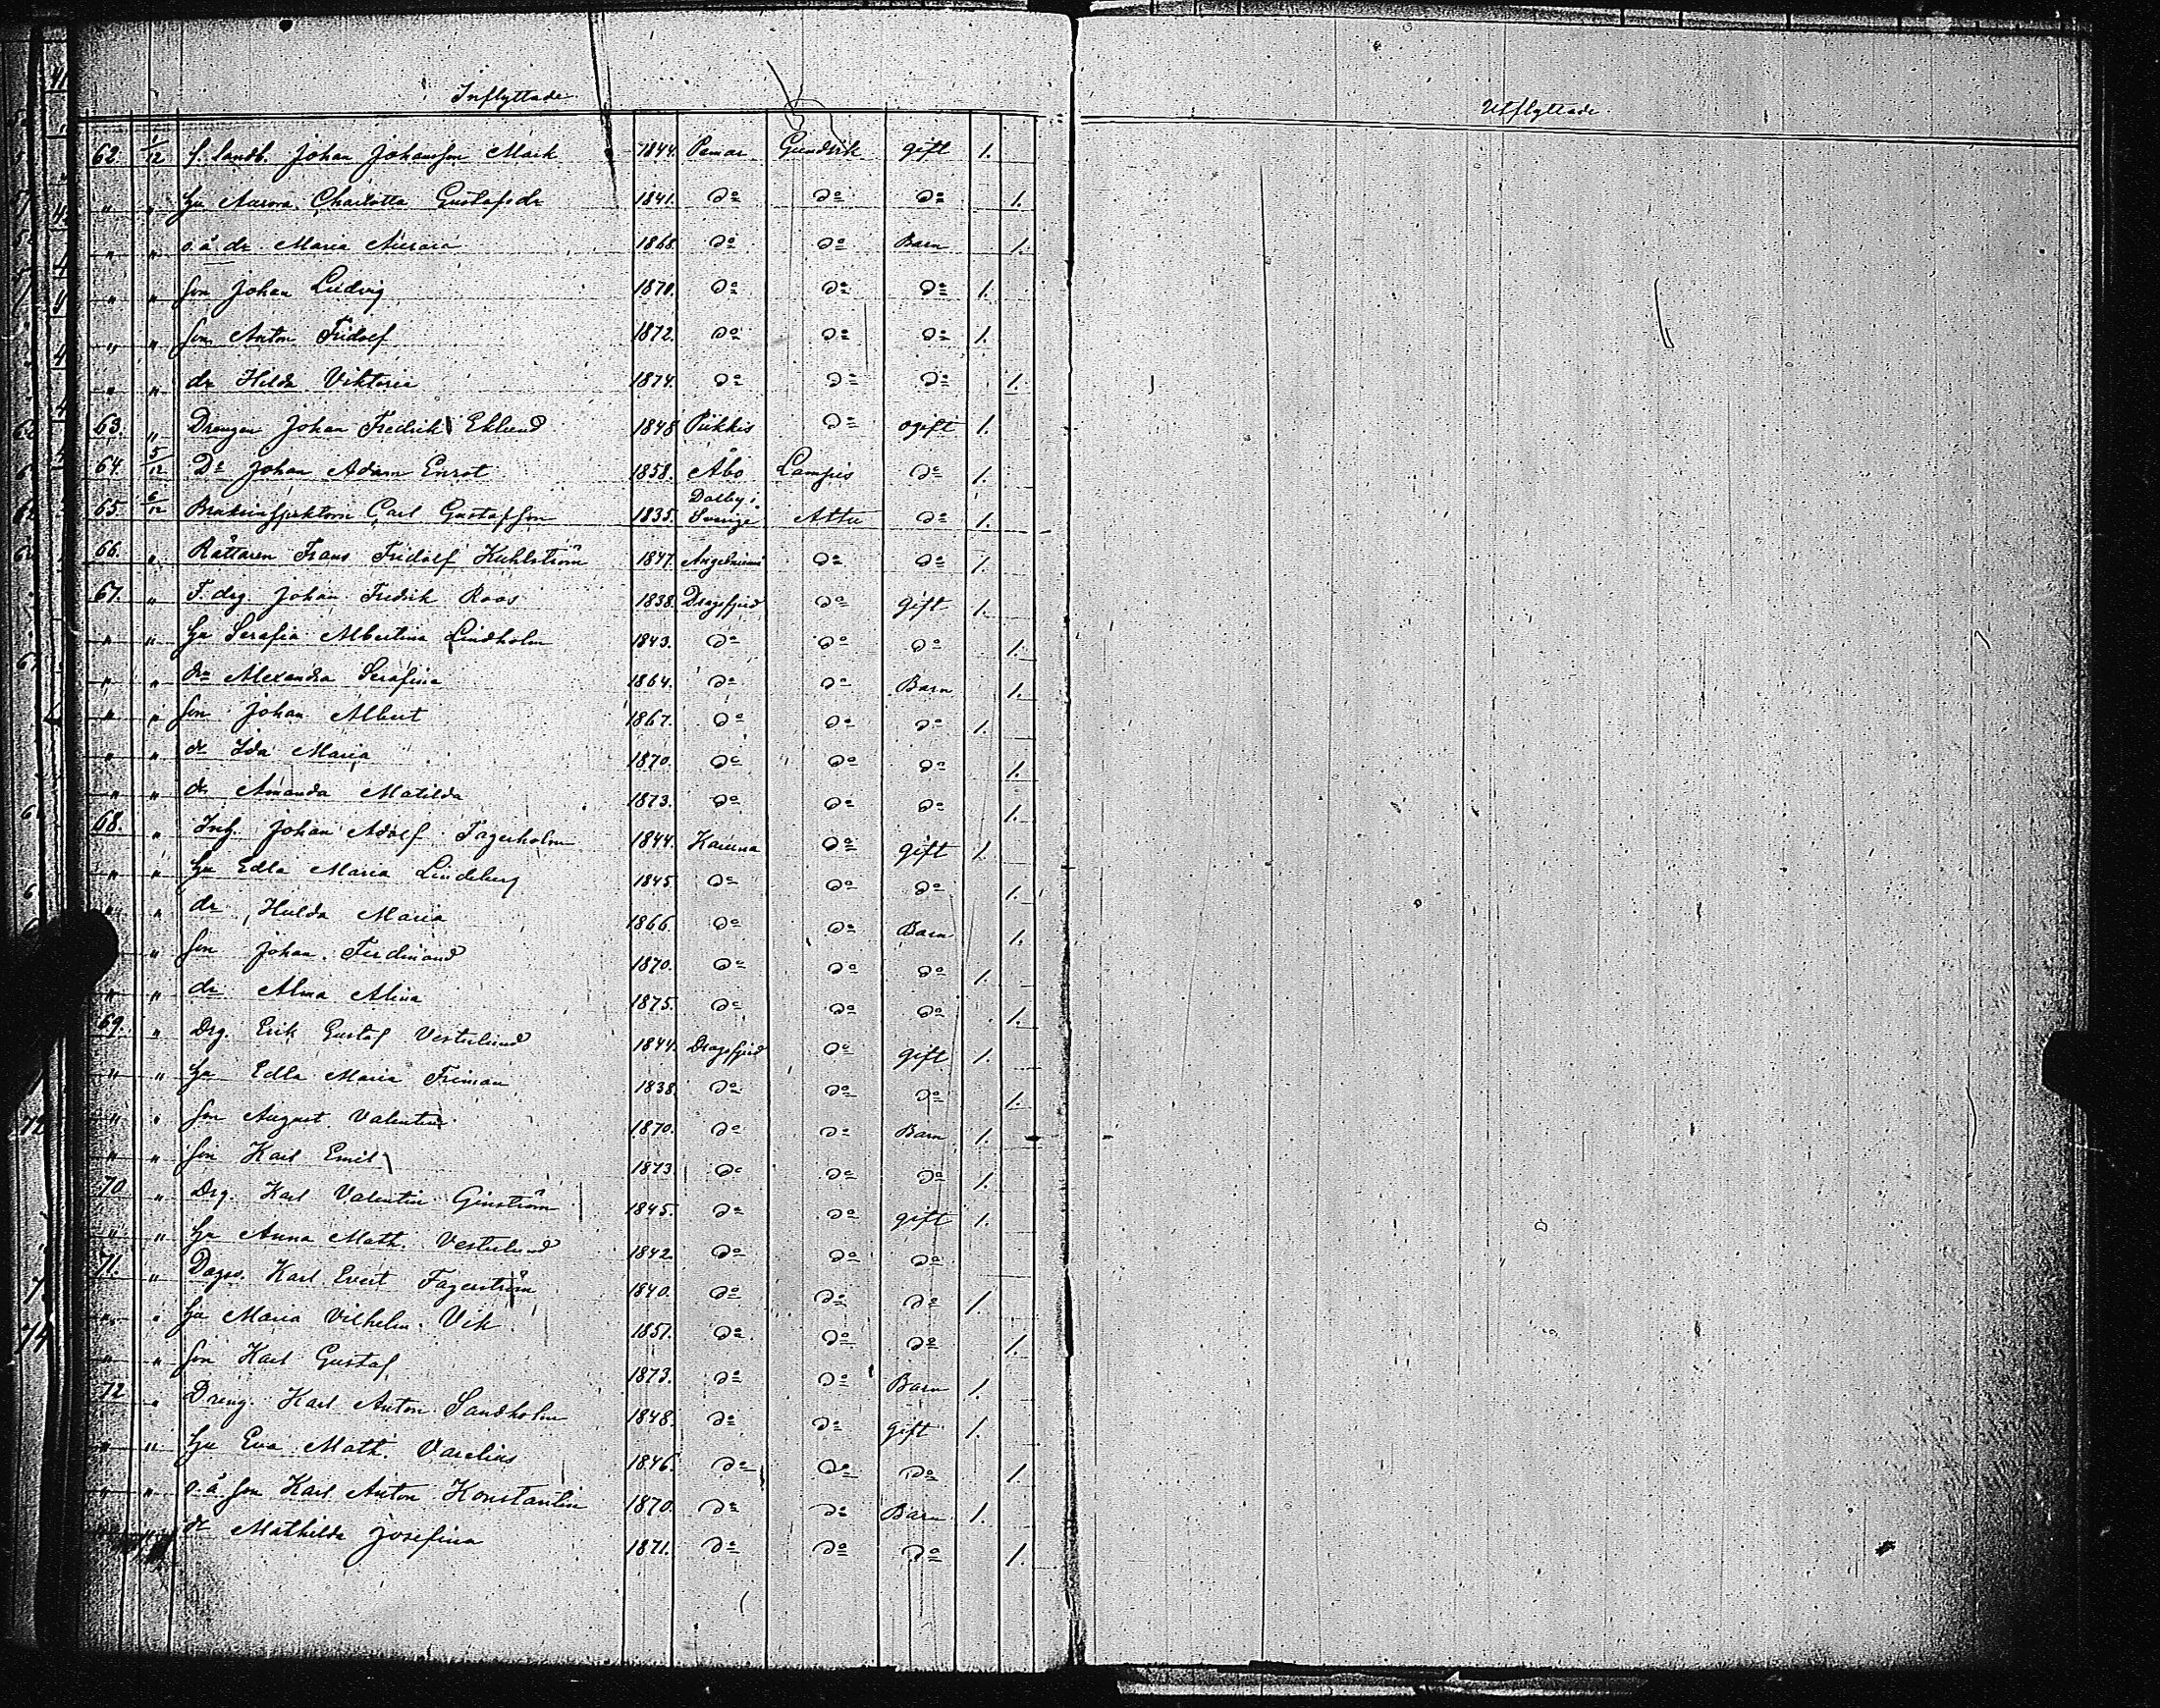 Inflyttade
62. 1/12 f. Landb. Johan Johansson Mark 1844. Pemar Gundvik gift 1.
" " Hu Aurora Charlotta Gustafsdr 1841. Do Do Do 1.
" " o. ä. dr Maria Aurora 1868. Do Do Barn 1.
" " son Johan Ludvig 1870. Do Do Do 1.
" " son Anton Fridolf 1872. Do Do Do 1.
" " dr Hilda Viktoria 1874. Do Do Do 1.
63. " Drengen Johan Fredrik Eklund 1848 Pikkis Do ogift 1.
64. 5/12 Do Johan Adam Enrot 1858. Åbo Lampis Do 1.
65. 6/12 Bruksinspektorn Carl Gustafsson 1835. Dalby i Sverige Attu Do 1.
66. " Rättaren Frans Fridolf Kuhlström 1847. Angelniemi Do Do 1.
67. " F. drg. Johan Fredrik Roos 1838. Dragsfjerd Do Gift 1.
" " Hu Serafia Albertina Lindholm 1843. Do Do Do 1.
" " dr Alexandra Serafina 1864. Do Do Barn 1.
" " son Johan Albert 1867. Do Do Do 1.
" " dr Ida Maria 1870. Do Do Do 1.
" " dr Amanda Matilda 1873. Do Do Do 1.
68. " Inh. Johan Adolf Fagerholm 1844. Karuna Do gift 1.
" " Hu Edla Maria Lindeberg 1845. Do Do Do 1.
" dr Hulda Maria 1866. Do Do Barn 1.
" son Johan Ferdinand 1870. Do Do Do 1.
" " dr Alma Alina 1875. Do Do Do 1.
69. " Drg. Erik Gustaf Vesterlund 1844. Dragsfjerd Do gift 1.
" " Hu Edla Maria Friman 1838. Do Do Do 1.
" " son August Valentin 1870. Do Do Barn 1.
" " son Karl Emil 1873. Do Do Do 1.
70. " Drg. Karl Valentin Ginström 1845. Do Do gift 1.
" " Hu Anna Math. Vesterlund 1842. Do Do Do
71. " Dags. Karl Evert Fagerström 1840. Do Do Do 1.
" " Hu Maria Vilhelm. Vik 1851. Do Do Do 1.
" " son Karl Gustaf 1873. Do Do Barn 1.
72 " Dreng. Karl Anton Sandholm 1848. Do Do gift 1.
" " Hu Eva Math. Varelius 1846. Do Do Do 1.
" " o. ä son Karl Anton Konstantin 1870. Do Do Barn 1.
" " dr Mathilda Josefina 1871. Do Do Do 1.
Utflyttade.